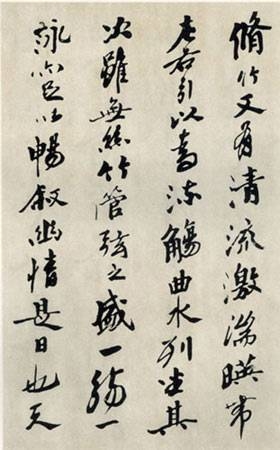 脩竹又有清流激湍暎带
左右引以为流觞曲水列坐其
次虽无丝竹管弦之盛一觞一
詠亦足以畅叙幽情是日也天